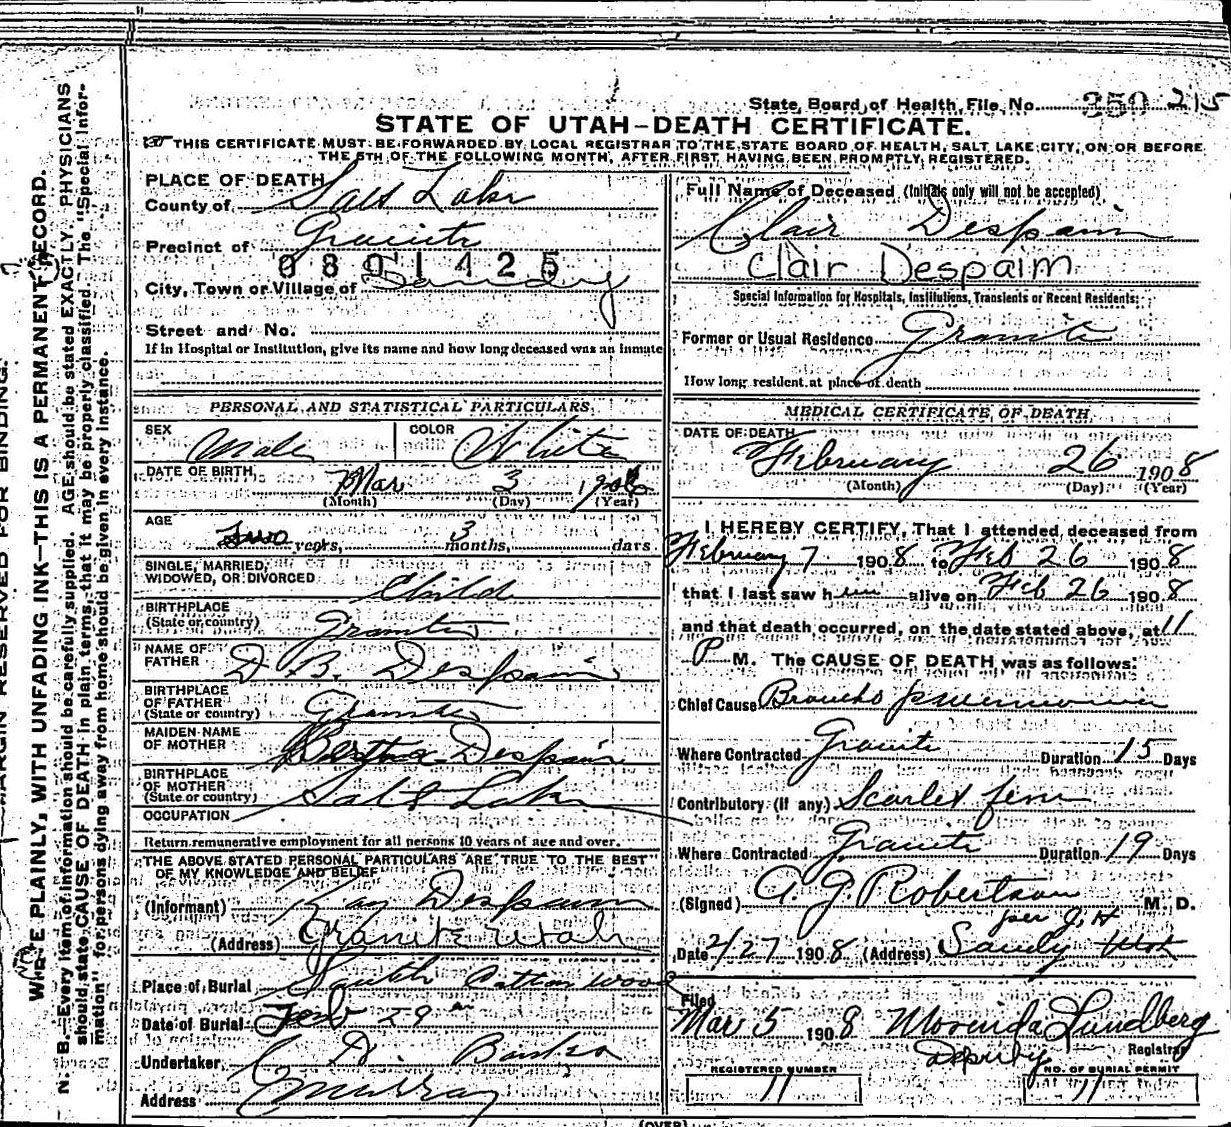 State Board of Health, File No. 350 215
STATE OF UTAH—DEATH CERTIFICATE.
THIS CERTIFICATE MUST BE FORWARDED BY LOCAL REGISTRAR TO THE STATE BOARD OF HEALTH, SALT LAKE CITY, ON OR BEFORE
THE 5TH OF THE FOLLOWING MONTH, AFTER FIRST HAVING BEEN PROMPTLY REGISTERED.
PLACE OF DEATH
County of Salt Lake
Precinct of Granite
0801425
City, Town or Village of Sandy
Street and No.
If in Hospital or Institution, give its name and how long deceased was an inmate
PERSONAL AND STATISTICAL PARTICULARS
SEX Male COLOR White
DATE OF BIRTH Mar 3
(Month) (Day) (Year)
AGE
Two years, 3 months, days
SINGLE, MARRIED,
WIDOWED, OR DIVORCED Child
BIRTHPLACE
(State or country) Granite
NAME OF
FATHER D. B. Despain
BIRTHPLACE
OF FATHER
(State or country) Granite
MAIDEN NAME
OF MOTHER Bertha Despain
BIRTHPLACE
OF MOTHER
(State or country) Salt Lake
OCCUPATION
Return remunerative employment for all persons 10 years of age and over.
THE ABOVE STATED PERSONAL PARTICULARS ARE TRUE TO THE BEST
OF MY KNOWLEDGE AND BELIEF
(Informant) Ray Despain
(Address) Granite Utah
Place of Burial South Cottonwood
Date of Burial Feb 29
Undertaker D. Banks
Address Murray
Full Name of Deceased (Initials only will not be accepted)
Clair Despain
Clair Despaim
Special Information for Hospitals, Institutions, Transients or Recent Residents:
Former or Usual Residence Granite
How long resident at place of death
MEDICAL CERTIFICATE OF DEATH
DATE OF DEATH
February 26 1908
(Month) (Day) (Year)
I HEREBY CERTIFY, That I attended deceased from
February 7 1908 to Feb 26 1908
that I last saw him alive on Feb 26 1908
and that death occurred, on the date stated above, at 11
P M. The CAUSE OF DEATH was as follows:
Chief Cause Broncho pneumonia
Where Contracted Granite Duration 15 Days
Contributory (if any) Scarlet fever
Where Contracted Granite Duration 19 Days
(Signed) A. G. Robertson M. D.
per J. H
Date 2/27 1908 (Address) Sandy Utah
Filed
Mar 5 1908 Morinda Lundberg
Deputy Registrar
REGISTERED NUMBER NO. OF BURIAL PERMIT
11 11
(OVER)
MARGIN RESERVED FOR BINDING.
WRITE PLAINLY, WITH UNFADING INK—THIS IS A PERMANENT RECORD.
N. B.—Every item of information should be carefully supplied. AGE should be stated EXACTLY. PHYSICIANS
should state CAUSE OF DEATH in plain terms, that it may be properly classified. The "Special Infor-
mation" for persons dying away from home should be given in every instance.